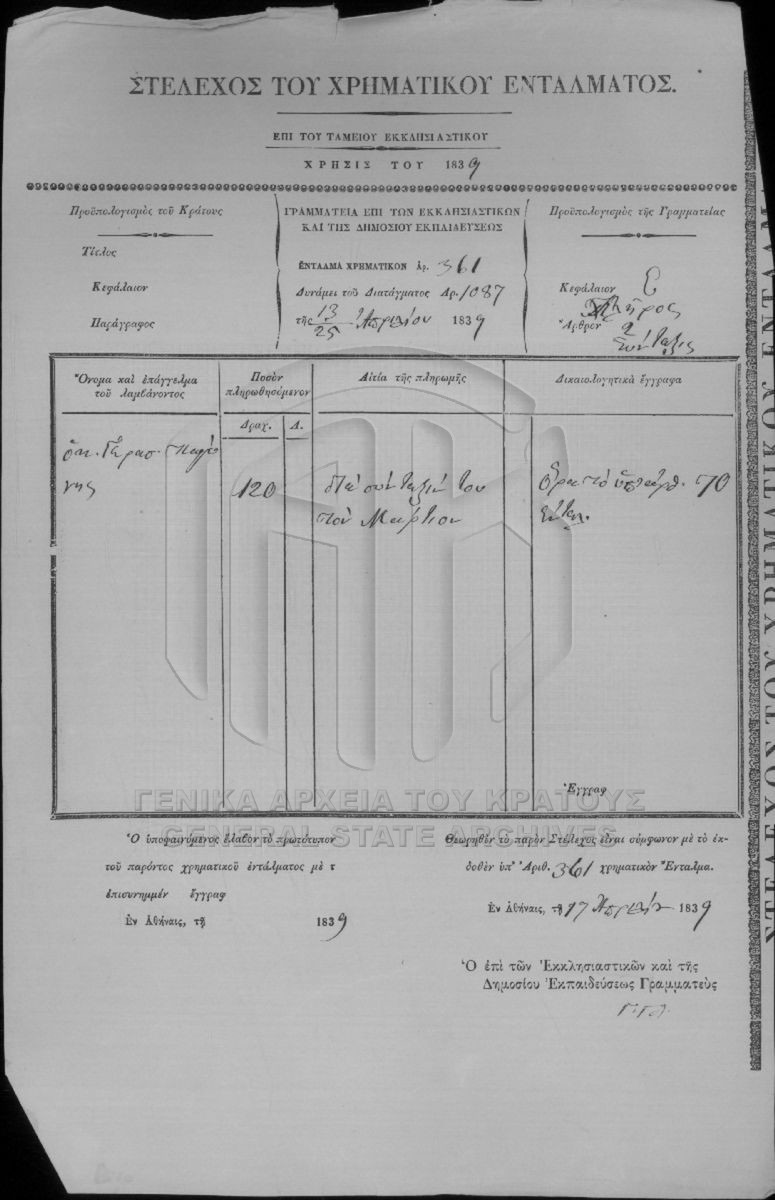 ΣΤΕΛΕΧΟΣ ΤΟΥ ΧΡΗΜΑΤΙΚΟΥ ΕΝΤΑΛΜΑΤΟΣ.
ΕΠΙ ΤΟΥ ΤΑΜΕΙΟΥ ΕΚΚΛΗΣΙΑΣΤΙΚΟΥ
ΧΡΗΣΙΣ ΤΟΥ 1839
Προϋπολογισμὸς τοῦ Κράτους
Τίτλος
Κεφάλαιον
Παράγραφος
ΓΡΑΜΜΑΤΕΙΑ ΕΠΙ ΤΩΝ ΕΚΚΛΗΣΙΑΣΤΙΚΩΝ
ΚΑΙ ΤΗΣ ΔΗΜΟΣΙΟΥ ΕΚΠΑΙΔΕΥΣΕΩΣ
ΕΝΤΑΛΜΑ ΧΡΗΜΑΤΙΚΟΝ Ἀρ. 361
Δυνάμει τοῦ Διατάγματος Ἀρ. 1087
τῆς 13/25 Ἀπριλίου 1839
Προϋπολογισμὸς τῆς Γραμματείας
Κεφάλαιον Ε
Κλῆρος
Ἄρθρον 2
Σύνταξις
Ὄνομα καὶ ἐπάγγελμα
τοῦ λαμβάνοντος
Ποσὸν
πληρωθησόμενον
Δραχ. Λ.
Αἰτία τῆς πληρωμῆς
Δικαιολογητικὰ ἔγγραφα
120
διὰ σύνταξίν του
τὸν Μάρτιον
ὅρα τὸ ὑπ' ἀριθ. 70
ἔνταλ.
Ἔγγραφ
ΓΕΝΙΚΑ ΑΡΧΕΙΑ ΤΟΥ ΚΡΑΤΟΥΣ
GENERAL STATE ARCHIVES
Ὁ ὑποφαινόμενος ἔλαβον τὸ πρωτότυπον
τοῦ παρόντος χρηματικοῦ ἐντάλματος μὲ τ
ἐπισυνημμέν ἔγγραφ
Ἐν Ἀθήναις, τῇ 1839
Θεωρηθὲν τὸ παρὸν Στέλεχος εἶναι σύμφωνον μὲ τὸ ἐκ-
δοθὲν ὑπ' Ἀριθ. 361 χρηματικὸν Ἔνταλμα.
Ἐν Ἀθήναις, τῇ 17 Ἀπριλίου 1839
Ὁ ἐπὶ τῶν Ἐκκλησιαστικῶν καὶ τῆς
Δημοσίου Ἐκπαιδεύσεως Γραμματεὺς
ΣΤΕΛΕΧΟΣ ΤΟΥ ΧΡΗΜΑΤΙΚΟΥ ΕΝΤΑΛΜΑ